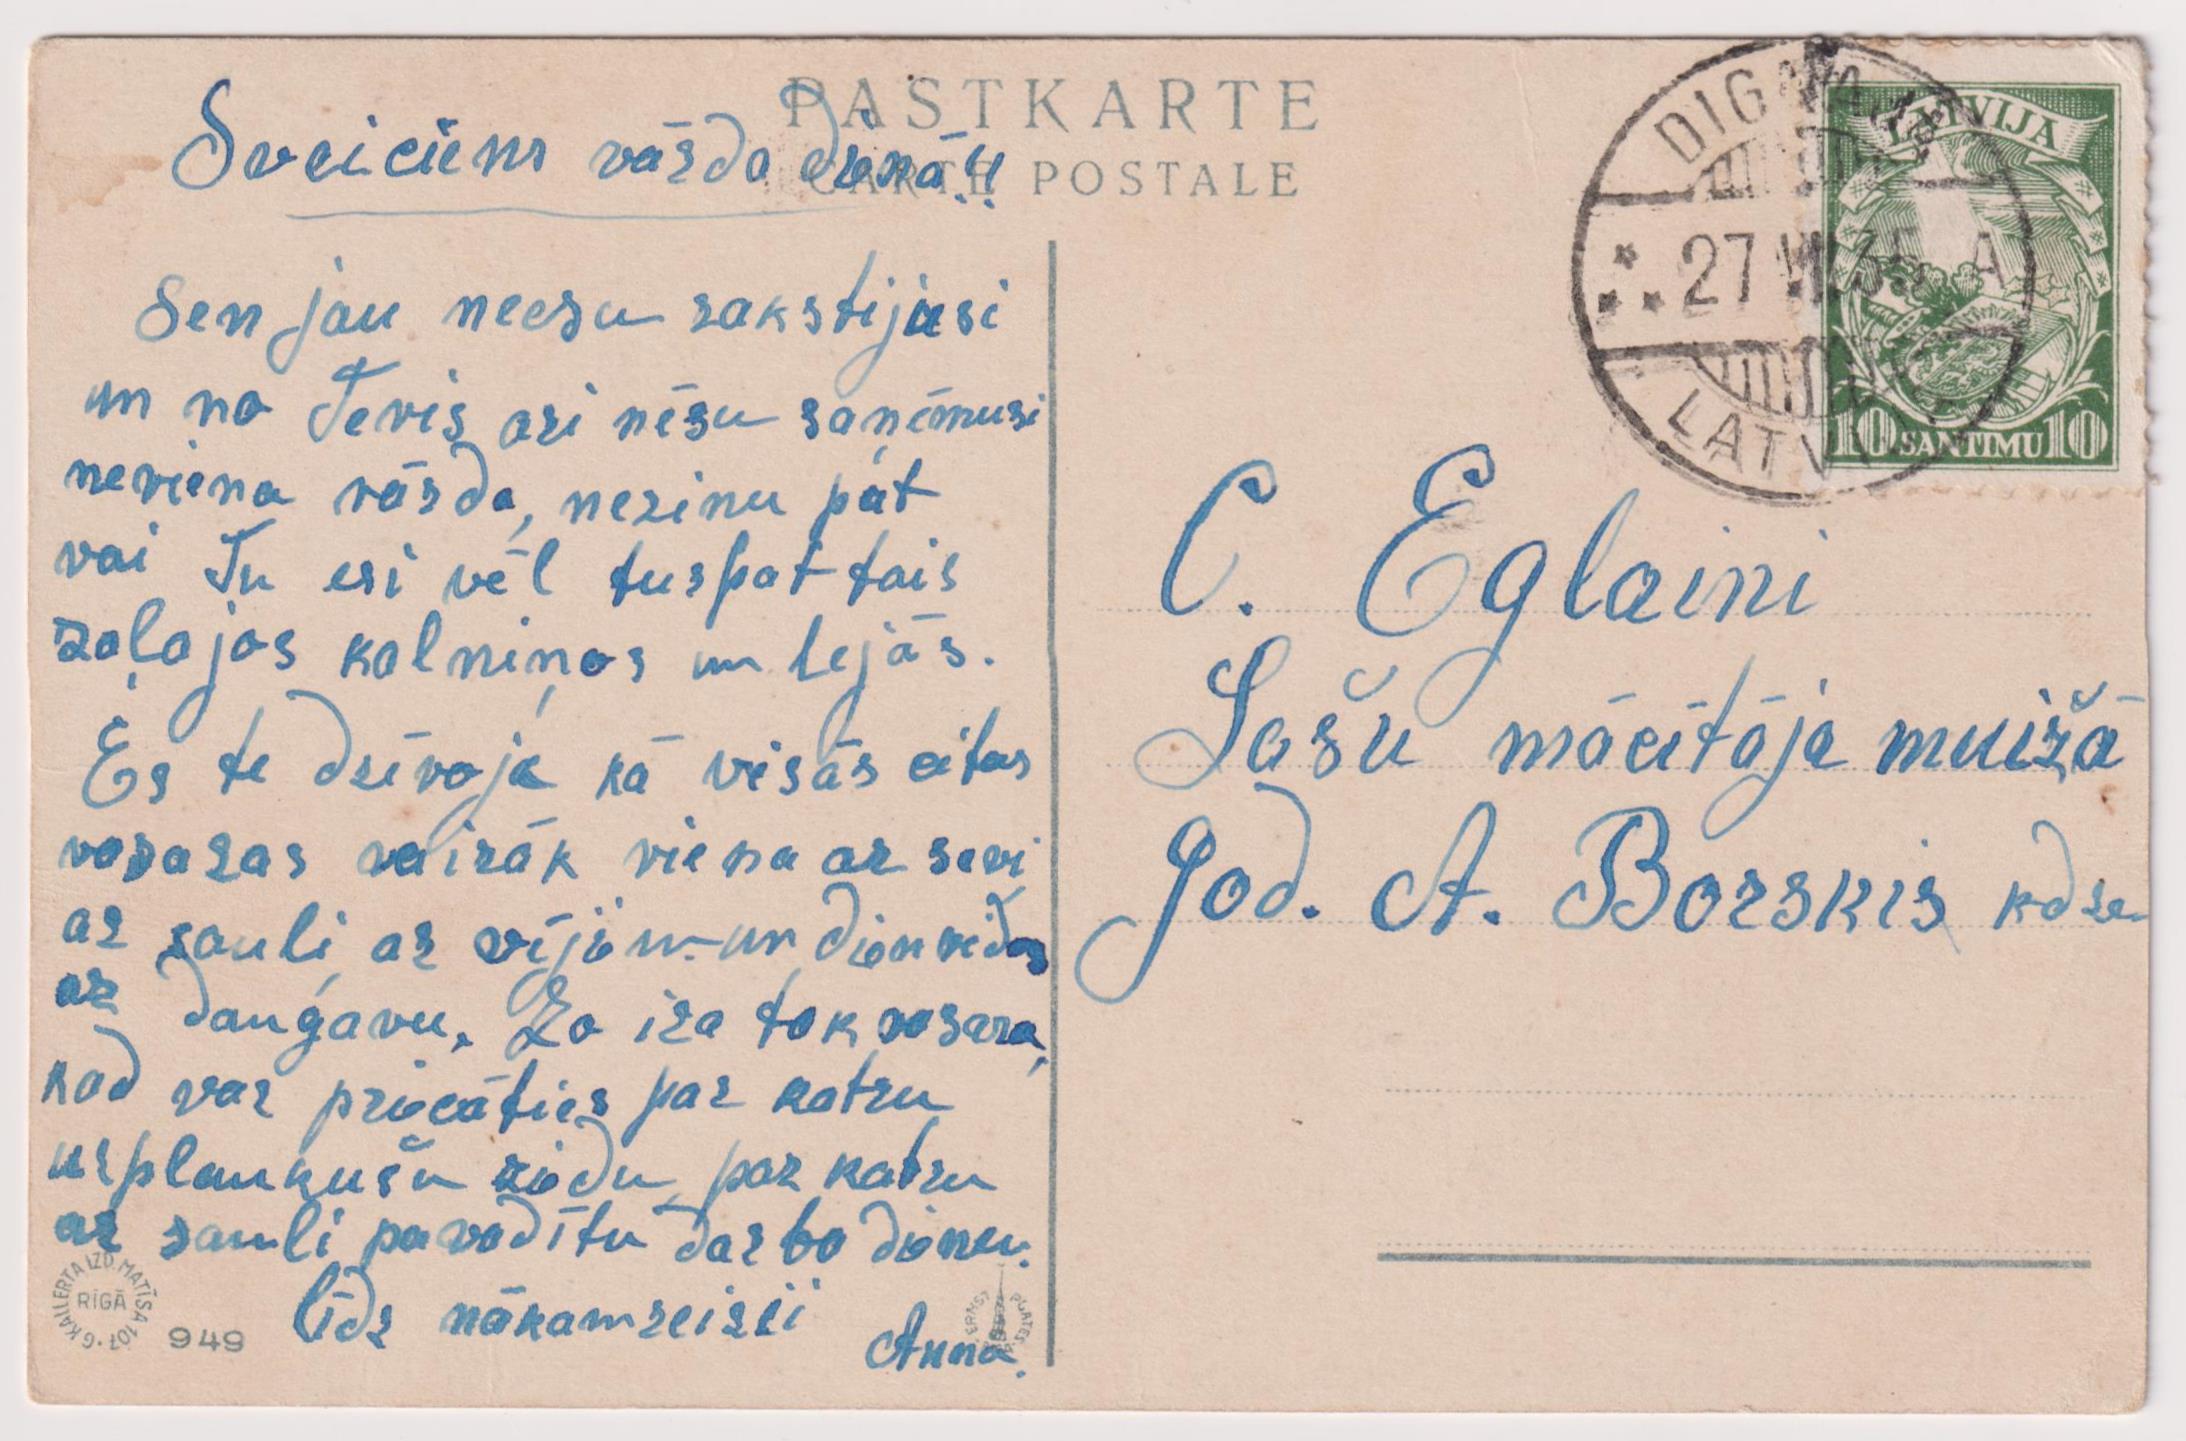 PASTKARTE
CARTE POSTALE
Sveiciens vārda dienā!!
Sen jau neesu rakstijusi
un no Tevis ari nēsu saņēmusi
neviena vārda, nezinu pat
vai Tu esi vēl turpat tais
zaļajos kalniņos un lejās.
Es te dzīvoja kā visās citas
vasaras vairāk viena ar sevi
ar sauli ar vējiem un dienvidos
ar daugavu. Ža ira tok vasara,
kad var priecāties par katru
uzplaukušu ziedu, par katru
ar sauli pavadītu darba dienu.
līdz nākamreizei
Anna.
G. KAILERTA IZD. MATĪSA 107
RĪGĀ
949
DIGNAJA
27 VII 35 A
LATVIJA
LATVIJA
10 SANTIMU 10
C. Eglaini
Sašu mācītāja muižā
God. A. Borskis kdze